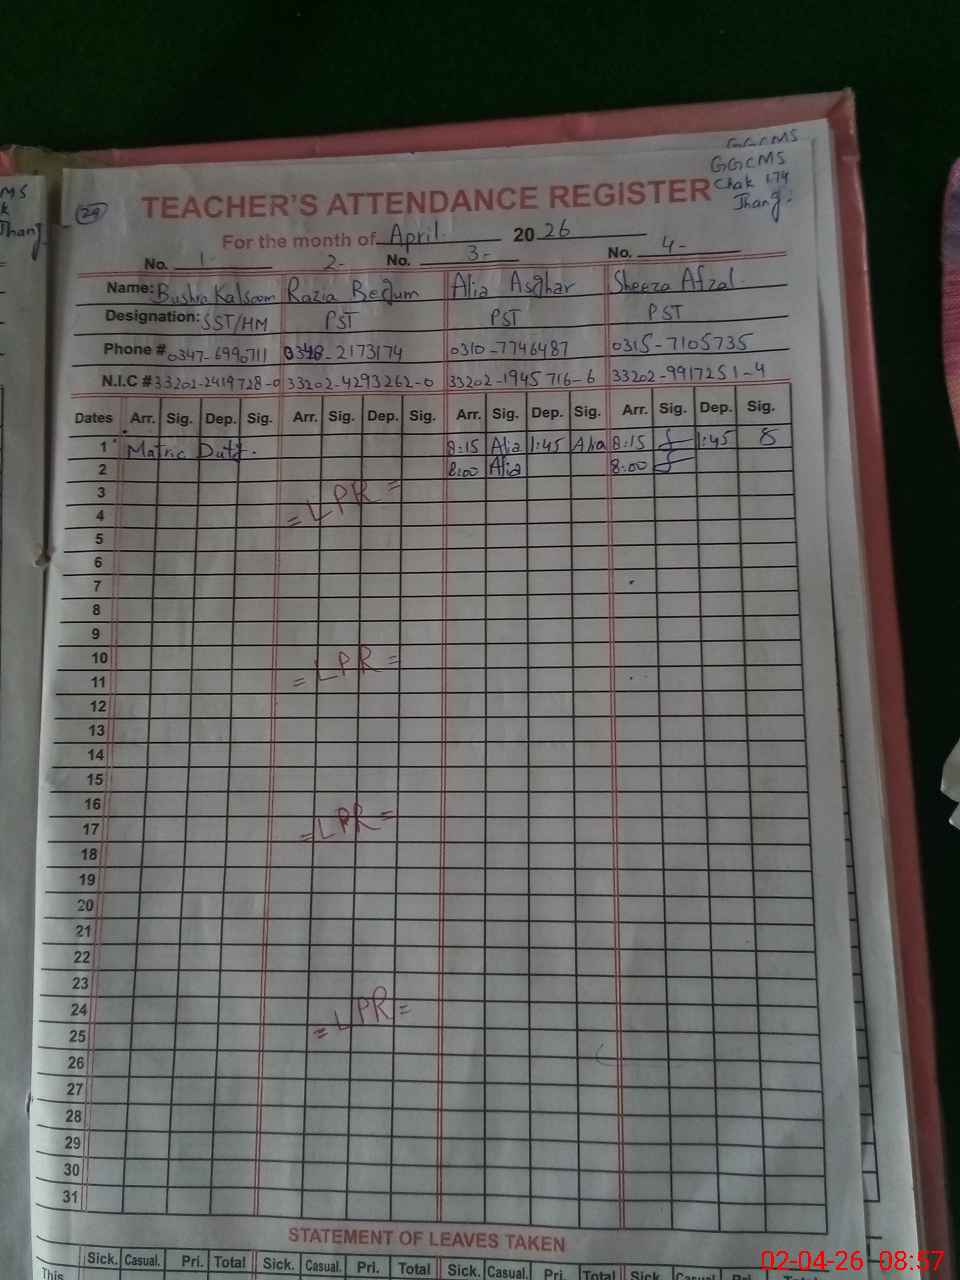 MS
K
Jhang
GGCMS
GGCMS
Chak 174
Jhang.
29
TEACHER'S ATTENDANCE REGISTER
For the month of April. 2026
No. 1- 2- No. 3- No. 4-
Name: Bushra Kalsoom Razia Begum Alia Asghar Sheeza Afzal.
Designation: SST/HM PST PST PST
Phone # 0347-6990711 0348-2173174 0310-7746487 0315-7105735
N.I.C # 33202-2419728-0 33202-4293262-0 33202-1945716-6 33202-9917251-4
Dates Arr. Sig. Dep. Sig. Arr. Sig. Dep. Sig. Arr. Sig. Dep. Sig. Arr. Sig. Dep. Sig.
1 Matric Duty. 8:15 Alia 1:45 Alia 8:15 1:45
2 8:00 Alia 8:00
3
= LPR =
4
5
6
7
8
9
10
= LPR =
11
12
13
14
15
16
= LPR =
17
18
19
20
21
22
23
24
= LPR =
25
26
27
28
29
30
31
STATEMENT OF LEAVES TAKEN
Sick. Casual. Pri. Total Sick. Casual. Pri. Total Sick. Casual. Pri. Total Sick. Casual. Pri. Total
This
02-04-26 08:57